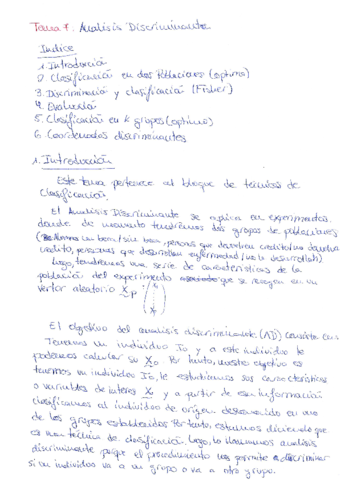 Tema 7. Analisis Discriminante
Indice
1. Introducción
2. Clasificación en dos Poblaciones (optimo)
3. Discriminación y clasificación (Fisher)
4. Evaluación
5. Clasificación en k grupos (optimo)
6. Coordenadas discriminantes
1. Introducción
Este tema pertenece al bloque de técnicas de
clasificación.
El Analisis Discriminante se aplica en experimentos
donde de momento tendremos dos grupos de poblaciones
( un bien/sin bien, personas que devuelvan credito/no devuelva
credito, personas que desarrollan enfermedad/no la desarrollan)
Luego, tendremos una serie de características de la
población del experimento que se recogen en un
vector aleatorio X p
El objetivo del analisis discriminante (AD) consiste en:
Tenemos un individuo Io y a este individuo le
podemos calcular su Xo. Por tanto, nuestro objetivo es
tenemos un individuo Io, le estudiamos sus características
o variables de interes Xo y a partir de esa información
clasificamos al individuo de origen desconocido en uno
de los grupos establecidos. Por tanto, estamos diciendo que
es una técnica de clasificación. Luego, lo llamamos analisis
discriminante porque el procedimiento nos permite discriminar
si un individuo va a un grupo o va a otro grupo.